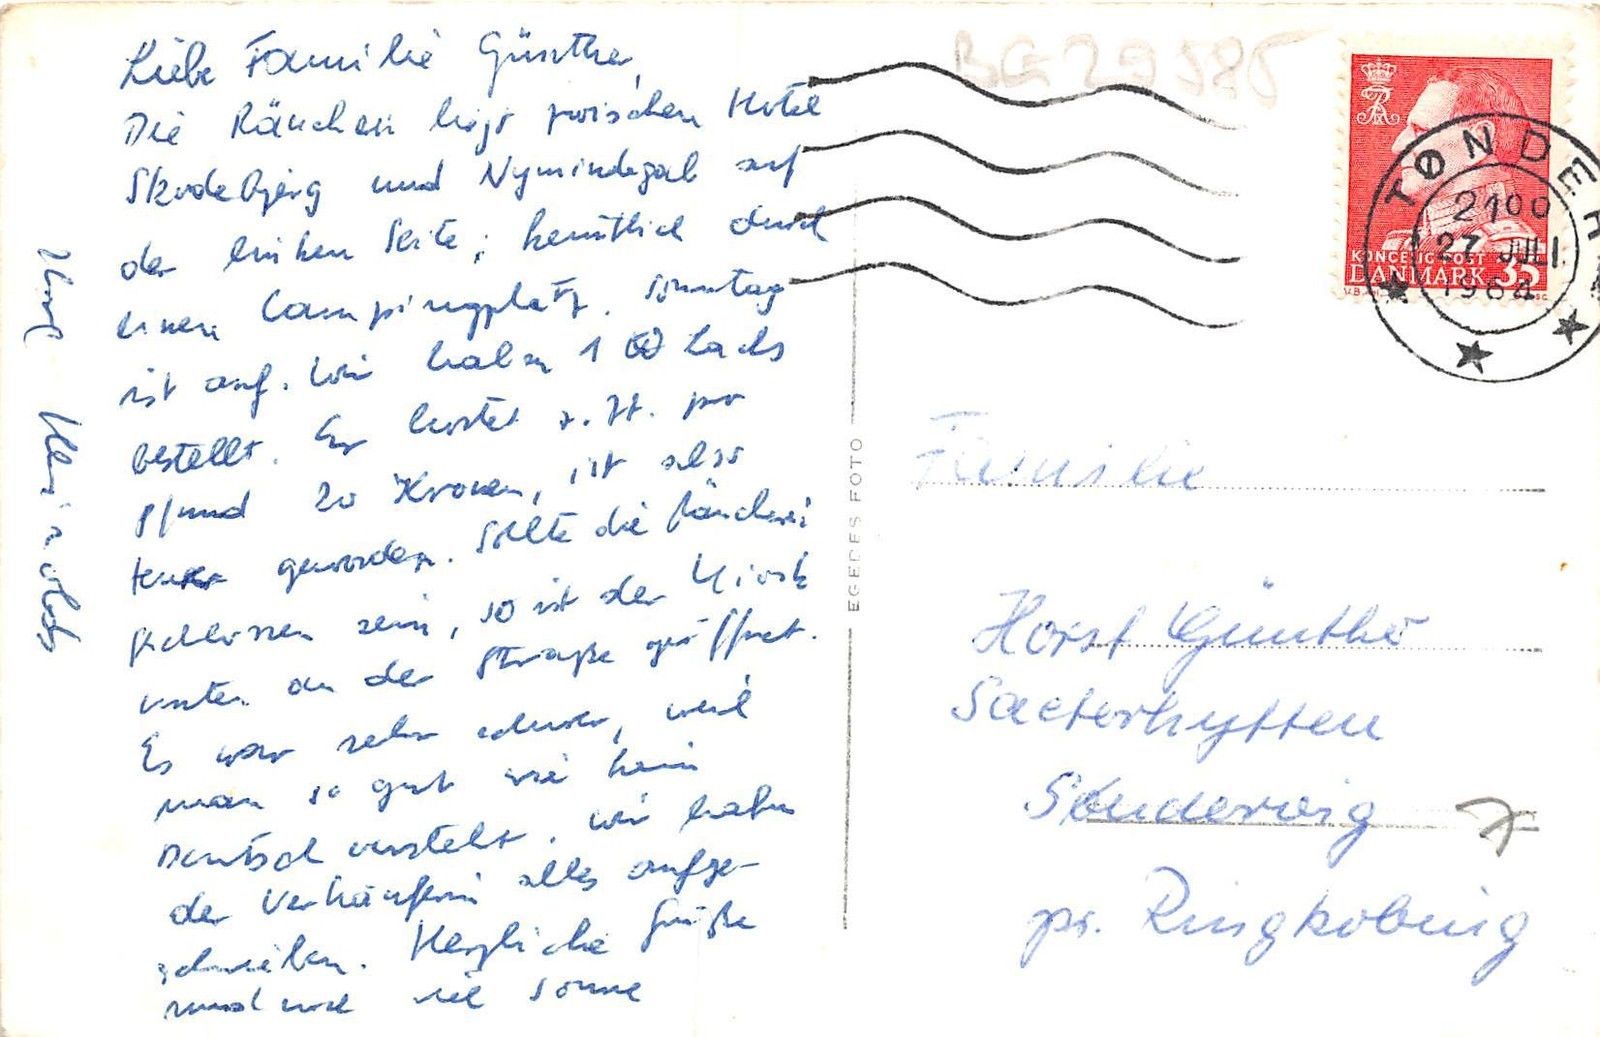 Liebe Familie Günther,
Die Räucherei liegt zwischen Hotel
Skodebjerg und Nymindegab auf
der linken Seite, kenntlich durch
einen Campingplatz. Sonntag
ist auf. Wir haben 1 Lachs
bestellt. Er kostet z. Zt. pro
Pfund 20 Kronen, ist also
teurer geworden. Sollte die Räucherei
geschlossen sein, so ist der Kiosk
unten an der Straße geöffnet.
Es war sehr schwer, weil
man so gut wie kein
Deutsch versteht. Wir haben
der Verkäuferin alles aufge-
schrieben. Herzliche Grüße
und noch viel Sonne
Ihre
BG 29585
KONGELIG POST
DANMARK 35
TØNDER
2100
27 JULI
1964
EGEDES FOTO
Familie
Horst Günther
Saeterhytten
Sønderwig
pr. Ringkobing